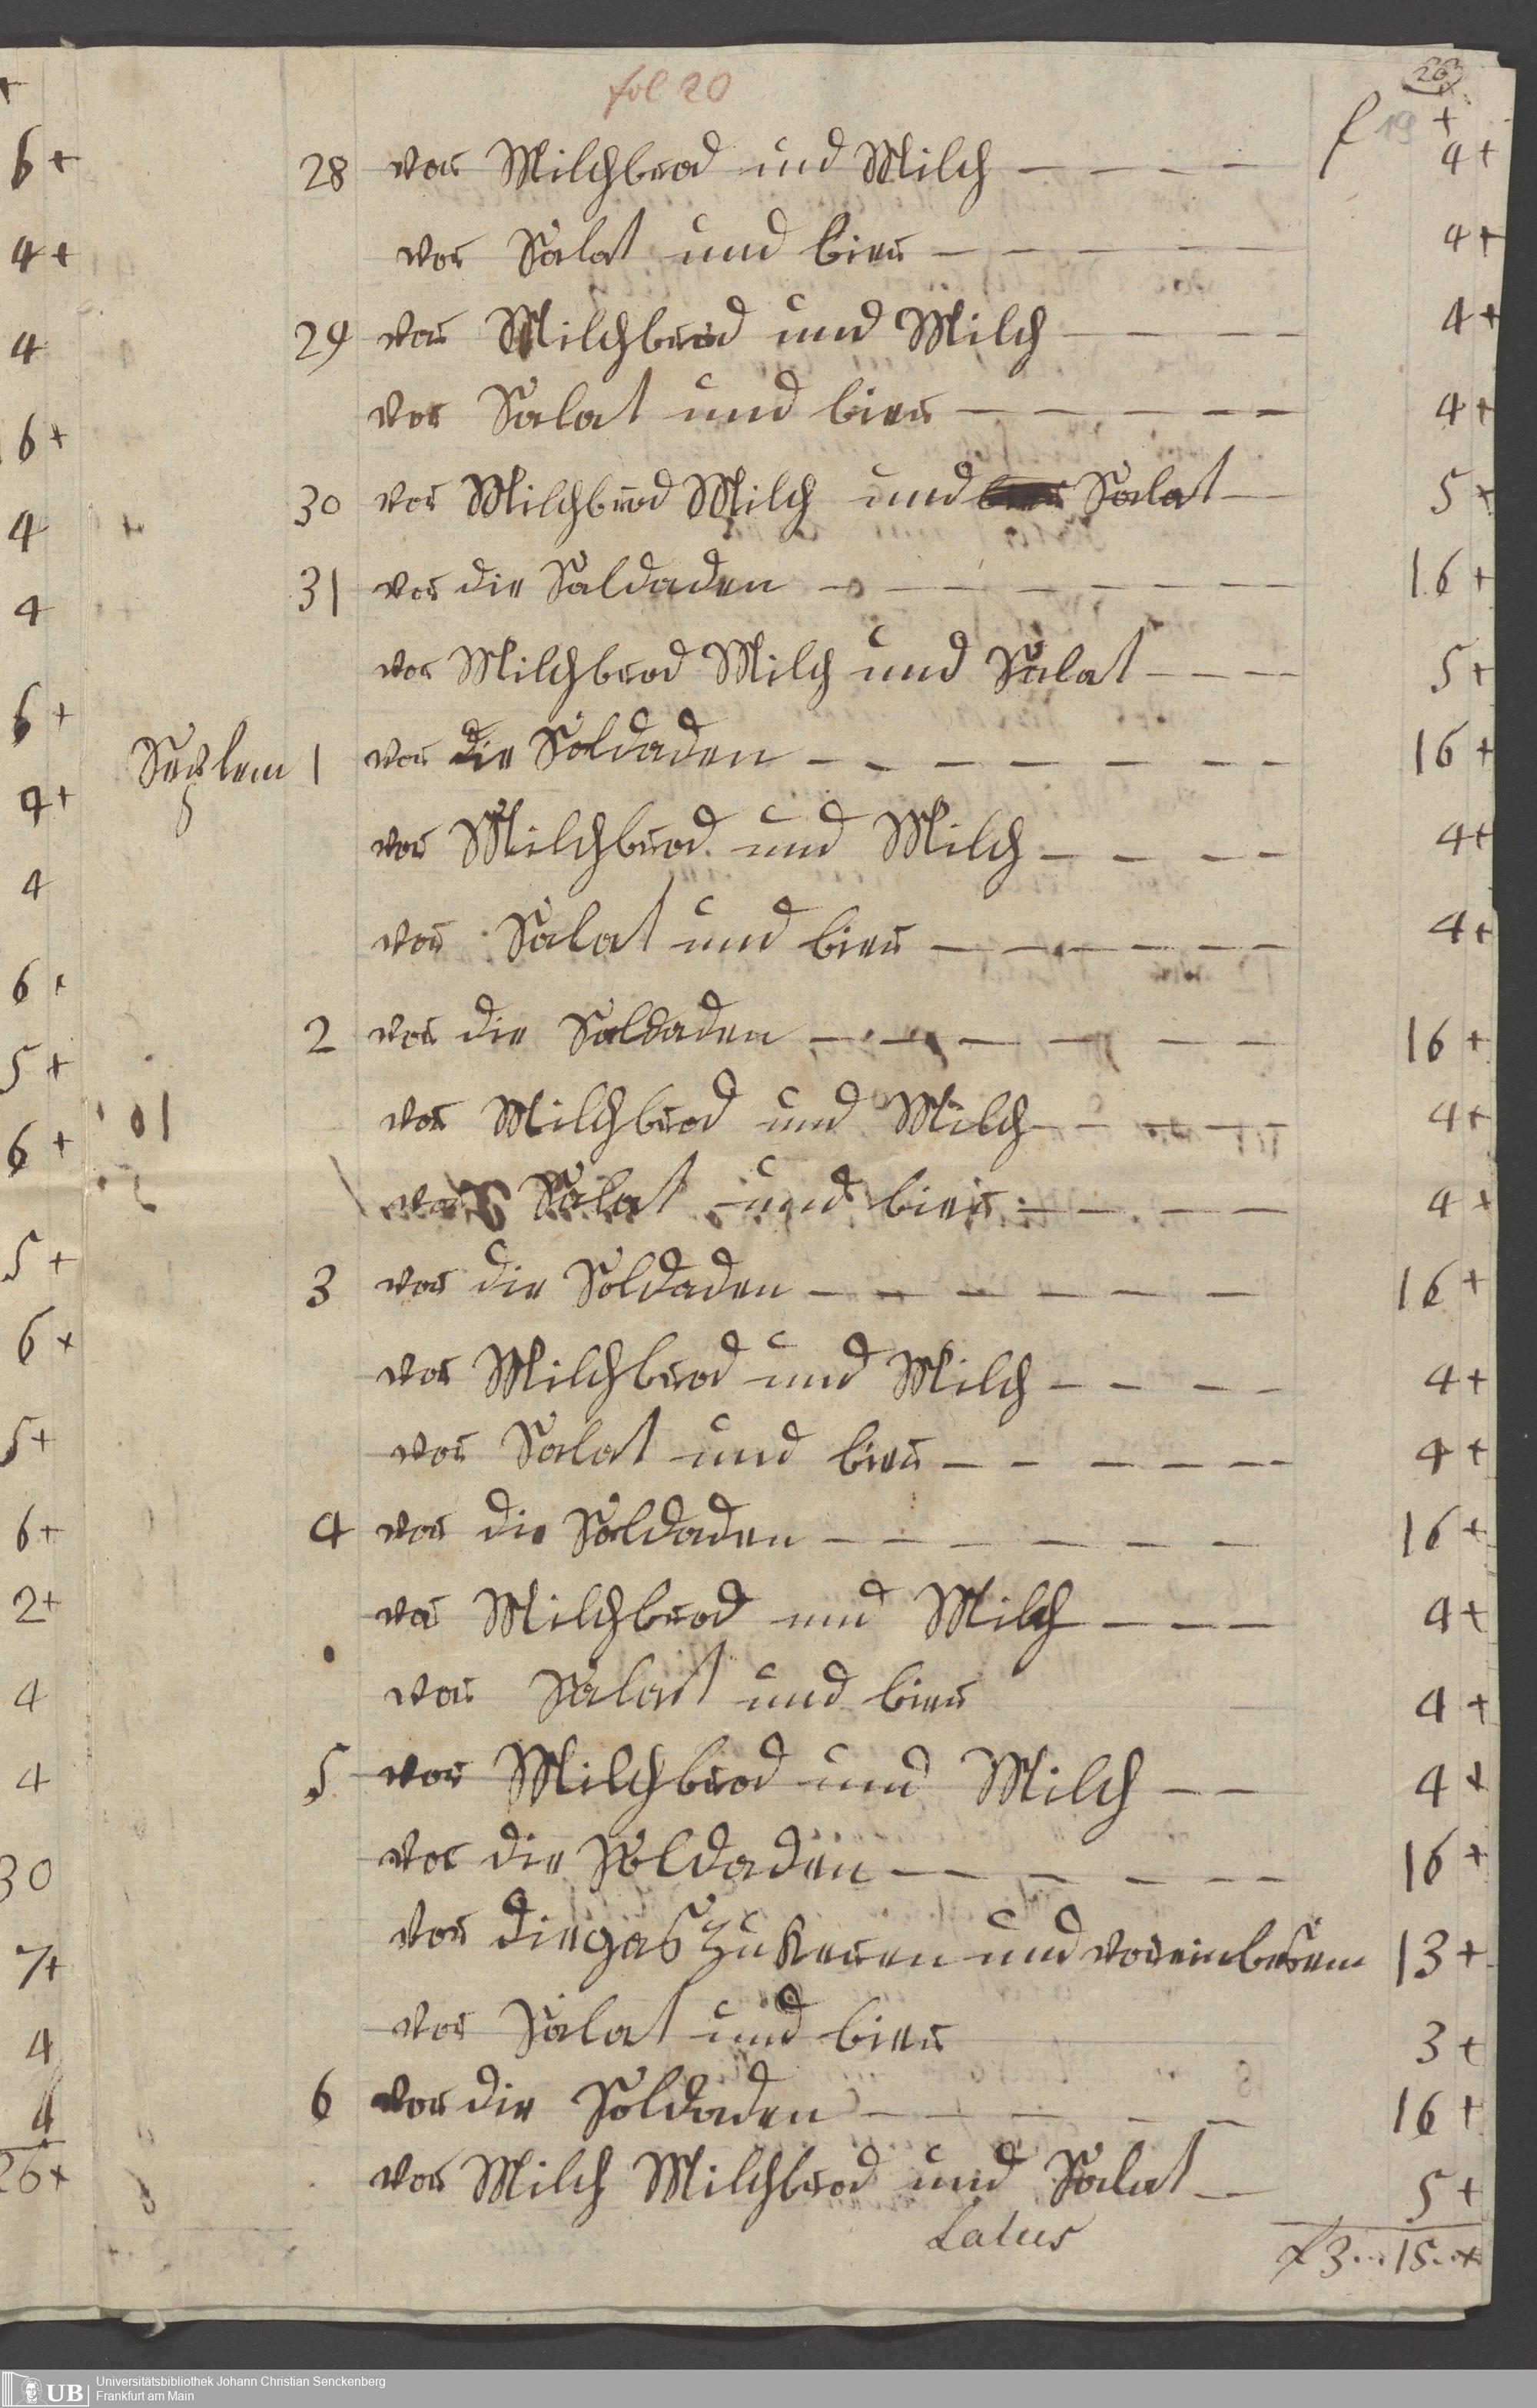 fol 20
26
f 19 +
28 vor Milchbrod und Milch – – – – 4+
vor Salat und bier – – – – – 4+
29 vor Milchbrod und Milch – – – – 4+
vor Salat und bier – – – – – 4+
30 vor Milchbrod Milch und Salat – 5+
31 vor die Soldaden – – – – – – – 16+
vor Milchbrod Milch und Salat – – – 5+
Seplem 1 vor die Soldaden – – – – – – – 16+
vor Milchbrod und Milch – – – – 4+
vor Salat und bier – – – – – – 4+
2 vor die Soldaden – – – – – – 16+
vor Milchbrod und Milch – – – – 4+
vor Salat und bier – – – – 4+
3 vor die Soldaden – – – – – – 16+
vor Milchbrod und Milch – – – – 4+
vor Salat und bier – – – – – 4+
4 vor die Soldaden – – – – – – 16+
vor Milchbrod und Milch – – – 4+
vor Salat und bier 4+
5 vor Milchbrod und Milch – – 4+
vor die Soldaden – – – – – 16+
vor die gas zu keren und vor ein besem 13+
vor Salat und bier 3+
6 vor die Soldaden – – – – – 16+
vor Milch Milchbrod und Salat – 5+
Latus f 3 .. 15 .. +
6+
4+
4
6+
4
4
6+
4+
4
6+
5+
6+
5+
6+
5+
6+
2+
4
4
30
7+
4
4
26+
UB Universitätsbibliothek Johann Christian Senckenberg
Frankfurt am Main